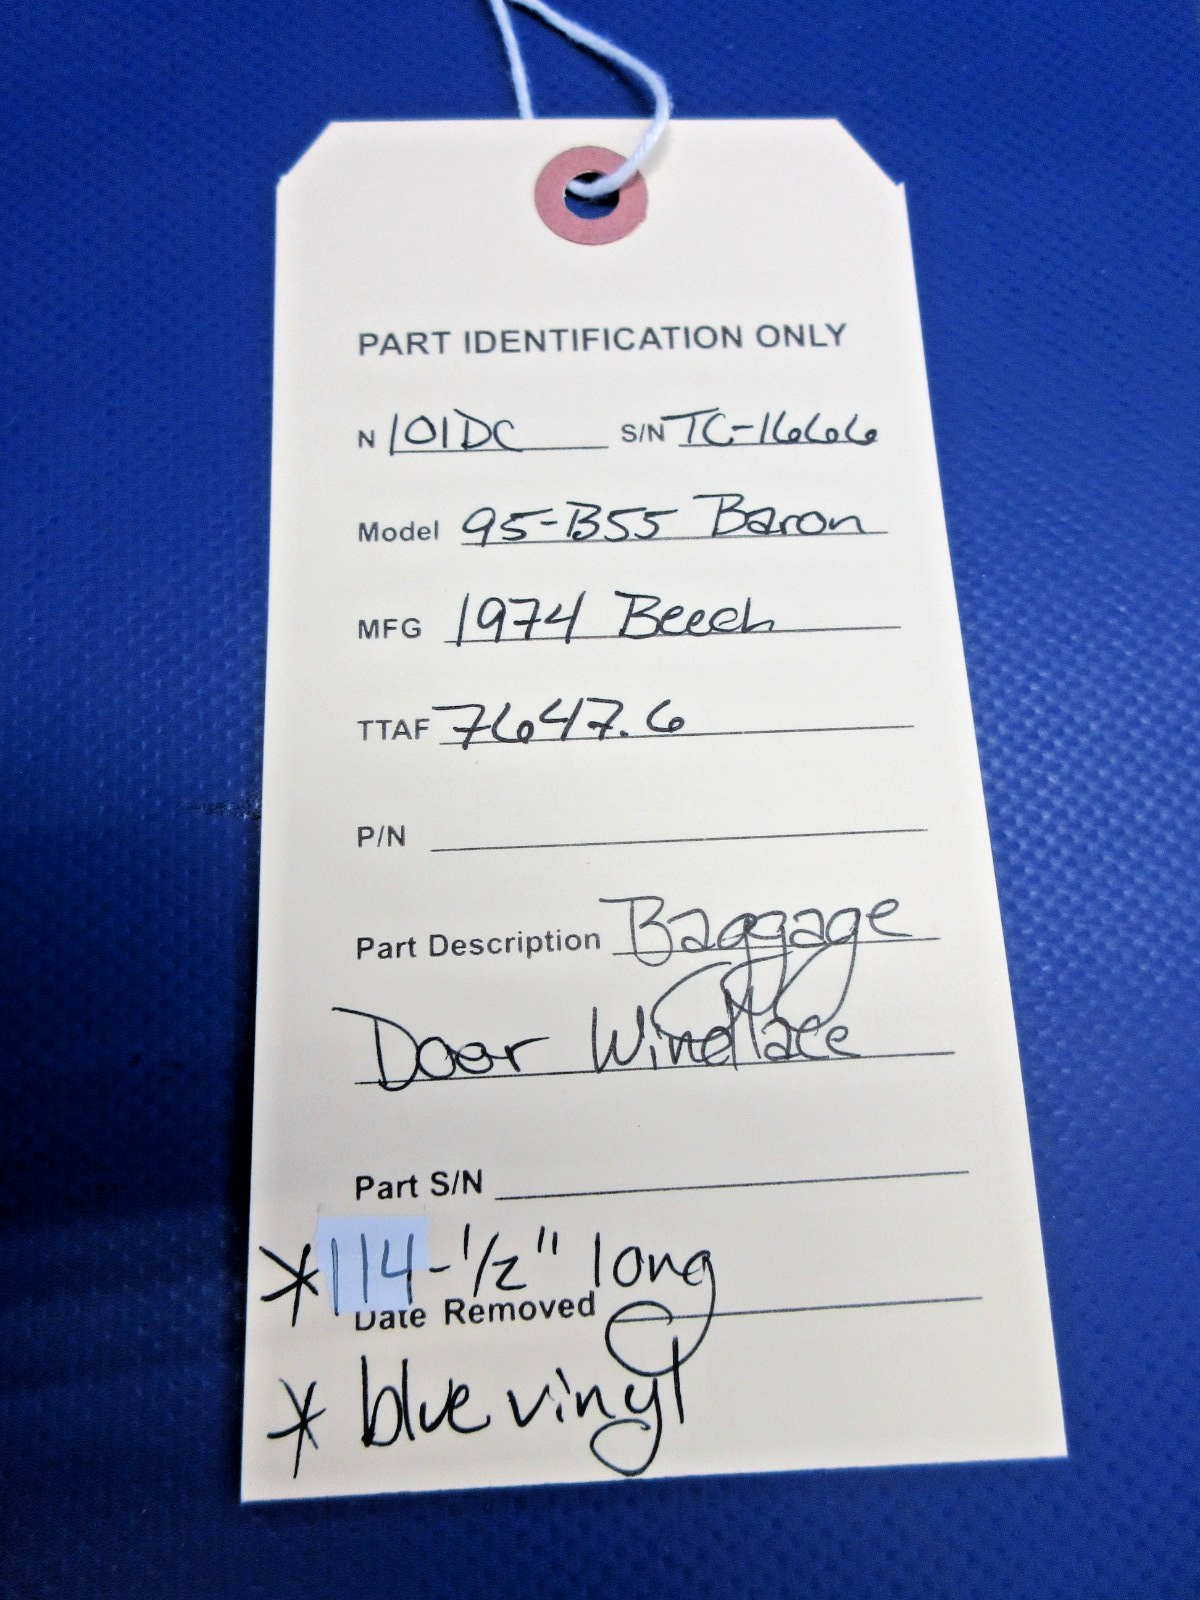 PART IDENTIFICATION ONLY
N 101DC S/N TC-1666
Model 95-B55 Baron
MFG 1974 Beech
TTAF 7647.6
P/N
Part Description Baggage
Door Windlace
Part S/N
*114-1/2" long
Date Removed
* blue vinyl